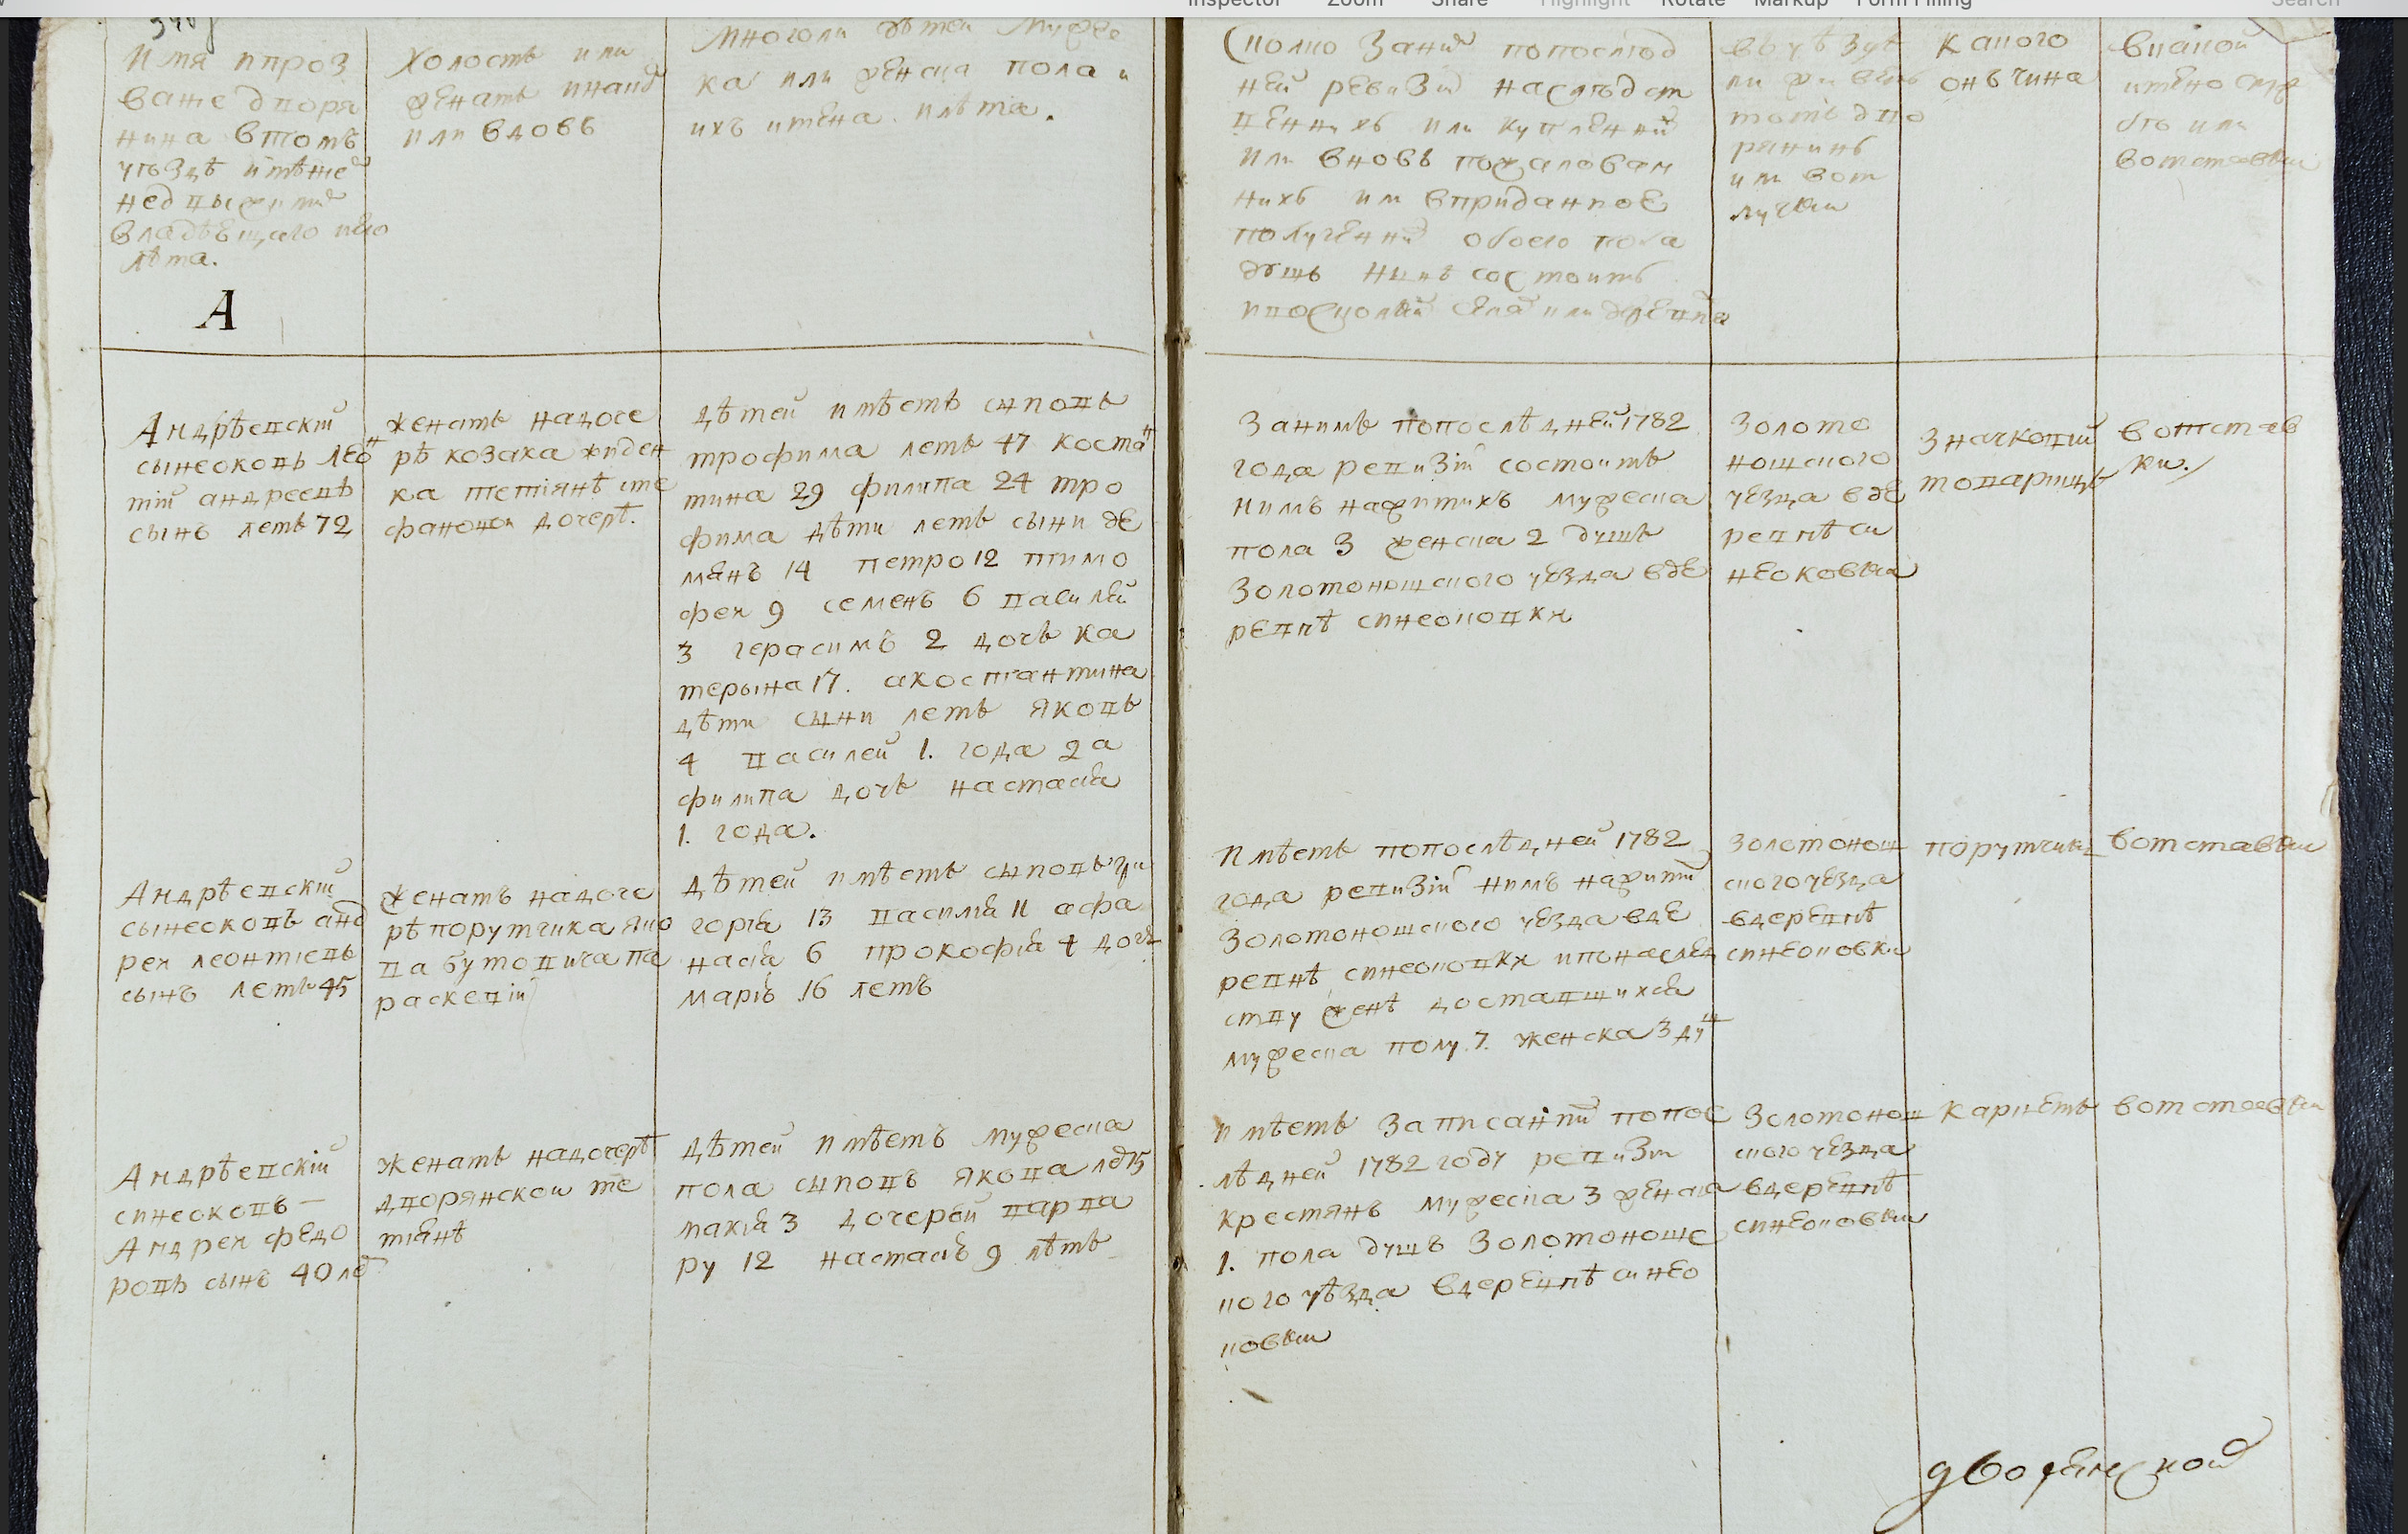 Inspector Zoom Share Highlight Rotate Markup Form Filling Search
Имя ипроз
вание дворя
нина втомъ
уѣздѣ имѣние
недвыжимое
владѣющаго иего
лѣта.
А
Холостъ или
женатъ инаком
или вдовъ
Многоли дѣтей мужес
ка или женска пола и
ихъ имена. илѣта.
Сколко Заним попослѣд
ней ревизій наслѣдст
веннихъ или купленних
или вновь пожалован
нихъ или вприданное
полученнихъ обоего пола
душъ нынѣ состоитъ
ивосколкихъ селах или деревнях
вуѣздѣ
ли живетъ
тотъ дво
рянинъ
или вот
лучки
какого
онъ чина
внакой
имено служ
бѣ или
вотставки
Андрѣевскій
сынеоковъ лео
тій андреевъ
сынъ летъ 72
женатъ надоче
рѣ козака жиден
ка тетіянѣ сте
фановой дочерѣ.
дѣтей имѣетъ сыновъ
трофима летъ 47 коста
тина 29 филипа 24 тро
фима дѣти летъ сыни де
мянъ 14 петро 12 тимо
феи 9 семенъ 6 василей
3 герасимъ 2 дочь ка
терына 17. акостантина
дѣти сыни летъ яковъ
4 василей 1. года 2 а
филипа дочь настасія
1. года.
Занимъ попослѣдней 1782
года ревизій состоитъ
нимъ нажитихъ мужеска
пола 3 женска 2 душъ
Золотоношского уезда вде
ревнѣ синеоковки
Золото
ношского
уезда вде
ревнѣ си
неоковки
Значковий
товарищъ
вотстав
ки.
Андрѣевскій
сынеоковъ анд
реи леонтіевъ
сынъ летъ 45
женатъ надоче
рѣ порутчика яко
ва бутовича па
раскевій
дѣтей имѣетъ сыновъ гри
горія 13 василія 11 афа
насія 6 прокофія 4 дочь
марію 16 летъ
имѣетъ попослѣдней 1782
года ревизій нимъ нажити
Золотоношского уезда вде
ревнѣ синеоковки ипонаслед
ству женѣ доставшихся
мужеска полу 7. женска 3 душ
Золотонош
ского уезда
вдеревнѣ
синеоковки
порутчикъ
вотставки
Андрѣевскій
синеоковъ —
Андреи федо
ровъ сынъ 40 лѣ
женатъ надочерѣ
дворянской те
тіянѣ
дѣтей имѣетъ мужеска
пола сыновъ якова лѣ 15
макія 3 дочерей варва
ру 12 настасію 9 лѣтъ
имѣетъ записанний попос
лѣдней 1782 году ревизіи
крестянъ мужеска 3 женска
1. пола душъ Золотоноше
кого уѣзда вдеревнѣ синео
ковки
Золотонош
ского уезда
вдеревнѣ
синеоковки
карнетъ
вотставки
дворянской